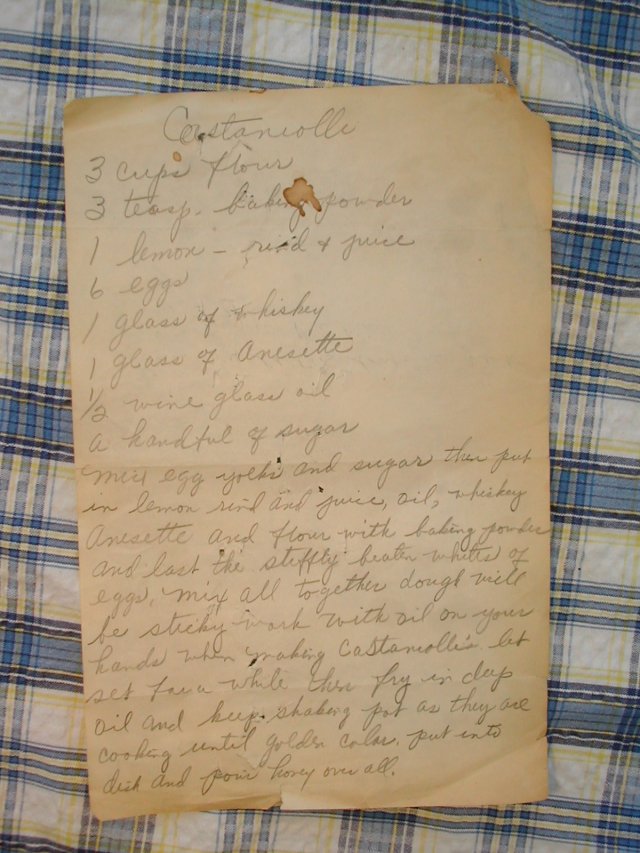 Castaniolle
3 cups flour
3 teasp. baking powder
1 lemon - rind + juice
6 eggs
1 glass of whiskey
1 glass of Anesette
1/2 wine glass oil
a handful of sugar
Mix egg yolks and sugar then put
in lemon rind and juice, oil, whiskey
Anesette and flour with baking powder
and last the stiffly beaten whites of
eggs, mix all together dough will
be sticky work with oil on your
hands when making Castaniolle's let
set for a while then fry in deep
oil and keep shaking pot as they are
cooking until golden color. put into
dish and pour honey over all.